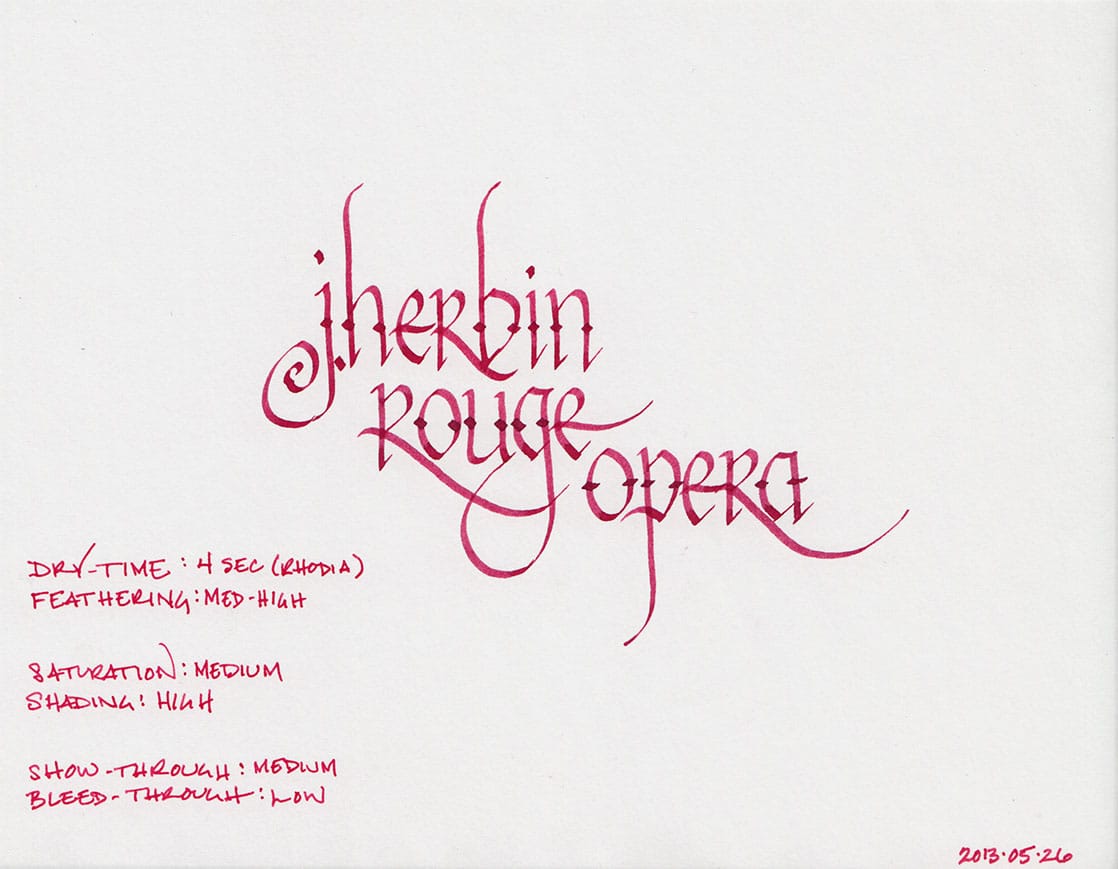 j.herbin
rouge
opera
DRY-TIME: 4 SEC (RHODIA)
FEATHERING: MED-HIGH
SATURATION: MEDIUM
SHADING: HIGH
SHOW-THROUGH: MEDIUM
BLEED-THROUGH: LOW
2013·05·26